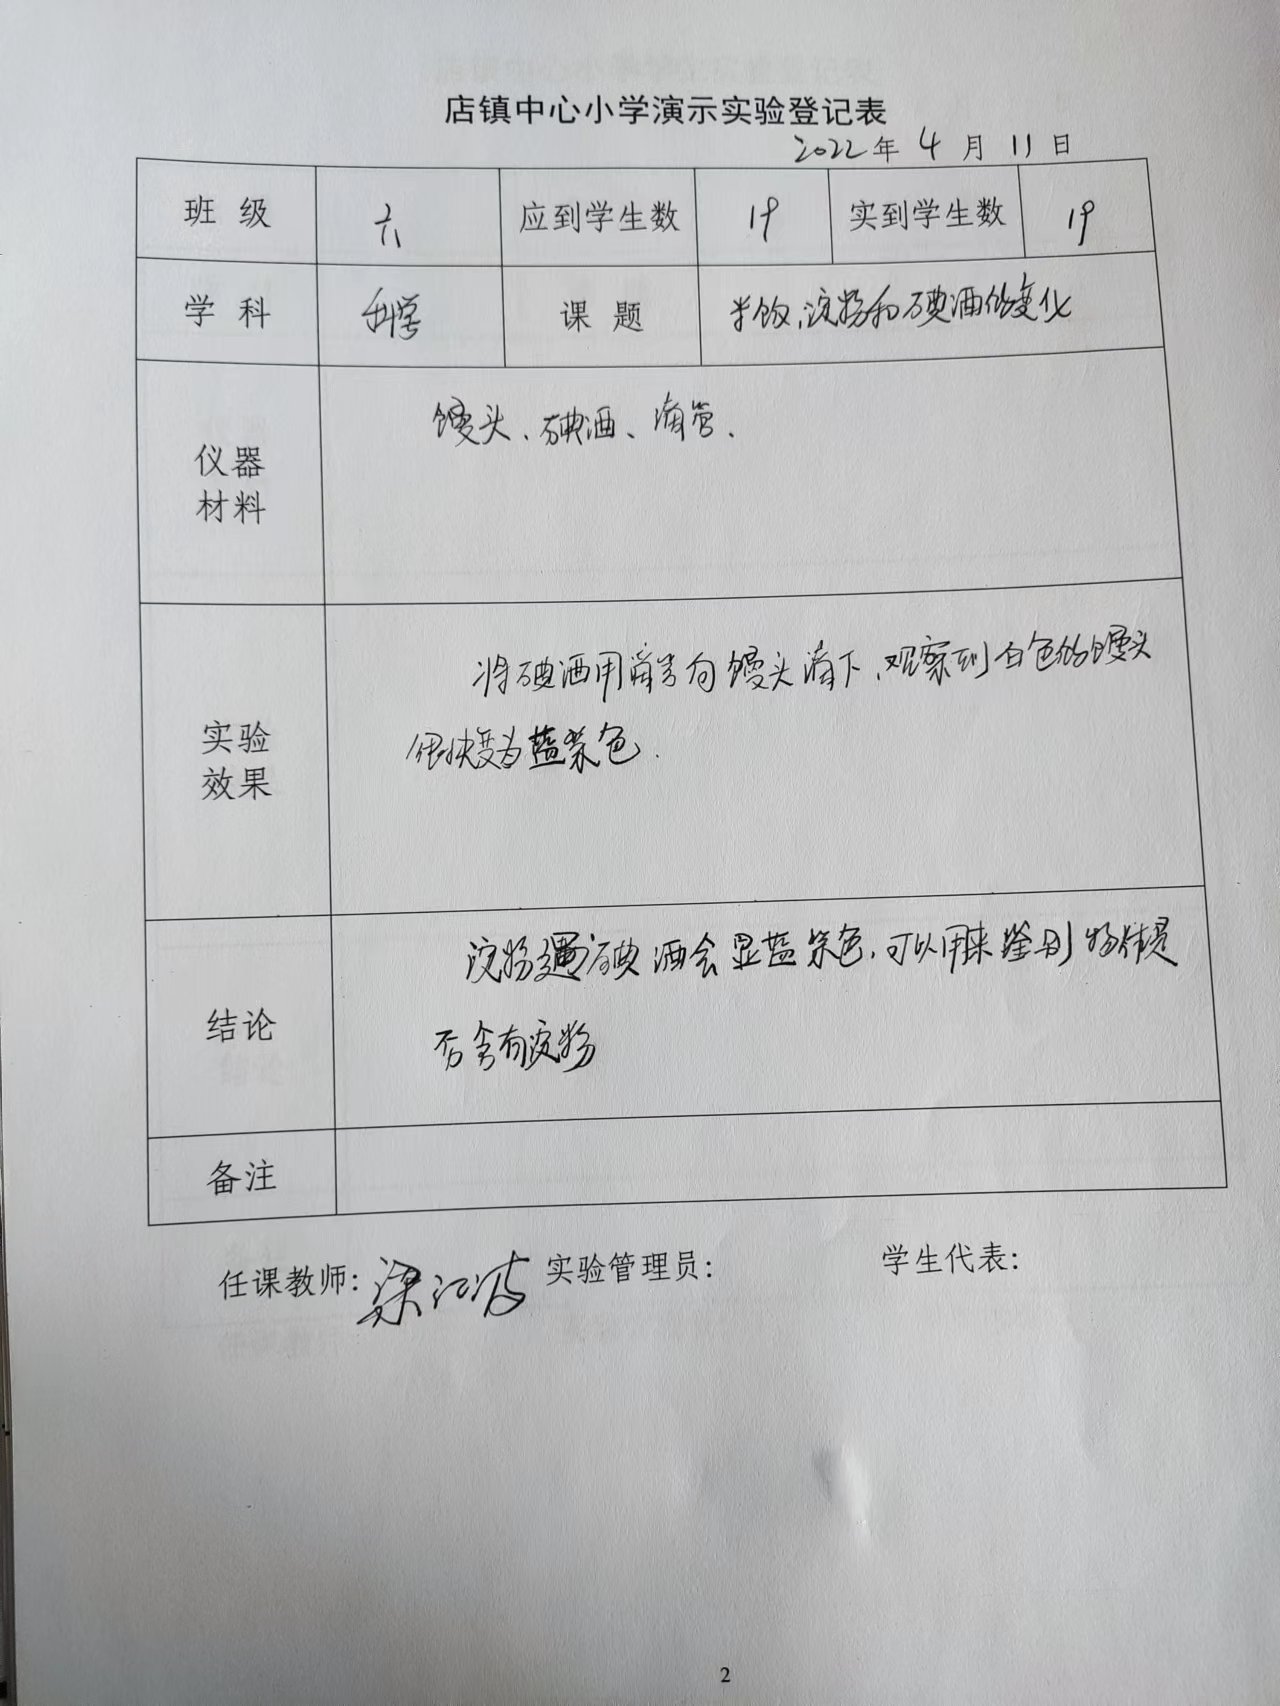 店镇中心小学演示实验登记表
2022年 4 月 11 日
班 级 六 应到学生数 19 实到学生数 19
学 科 科学 课 题 米饭、淀粉和碘酒的变化
仪器
材料
馒头、碘酒、滴管、
实验
效果
将碘酒用滴管向馒头滴下,观察到白色的馒头
很快变为蓝紫色.
结论
淀粉遇碘酒会显蓝紫色,可以用来鉴别物体是
否含有淀粉
备注
任课教师:梁江波 实验管理员: 学生代表:
2